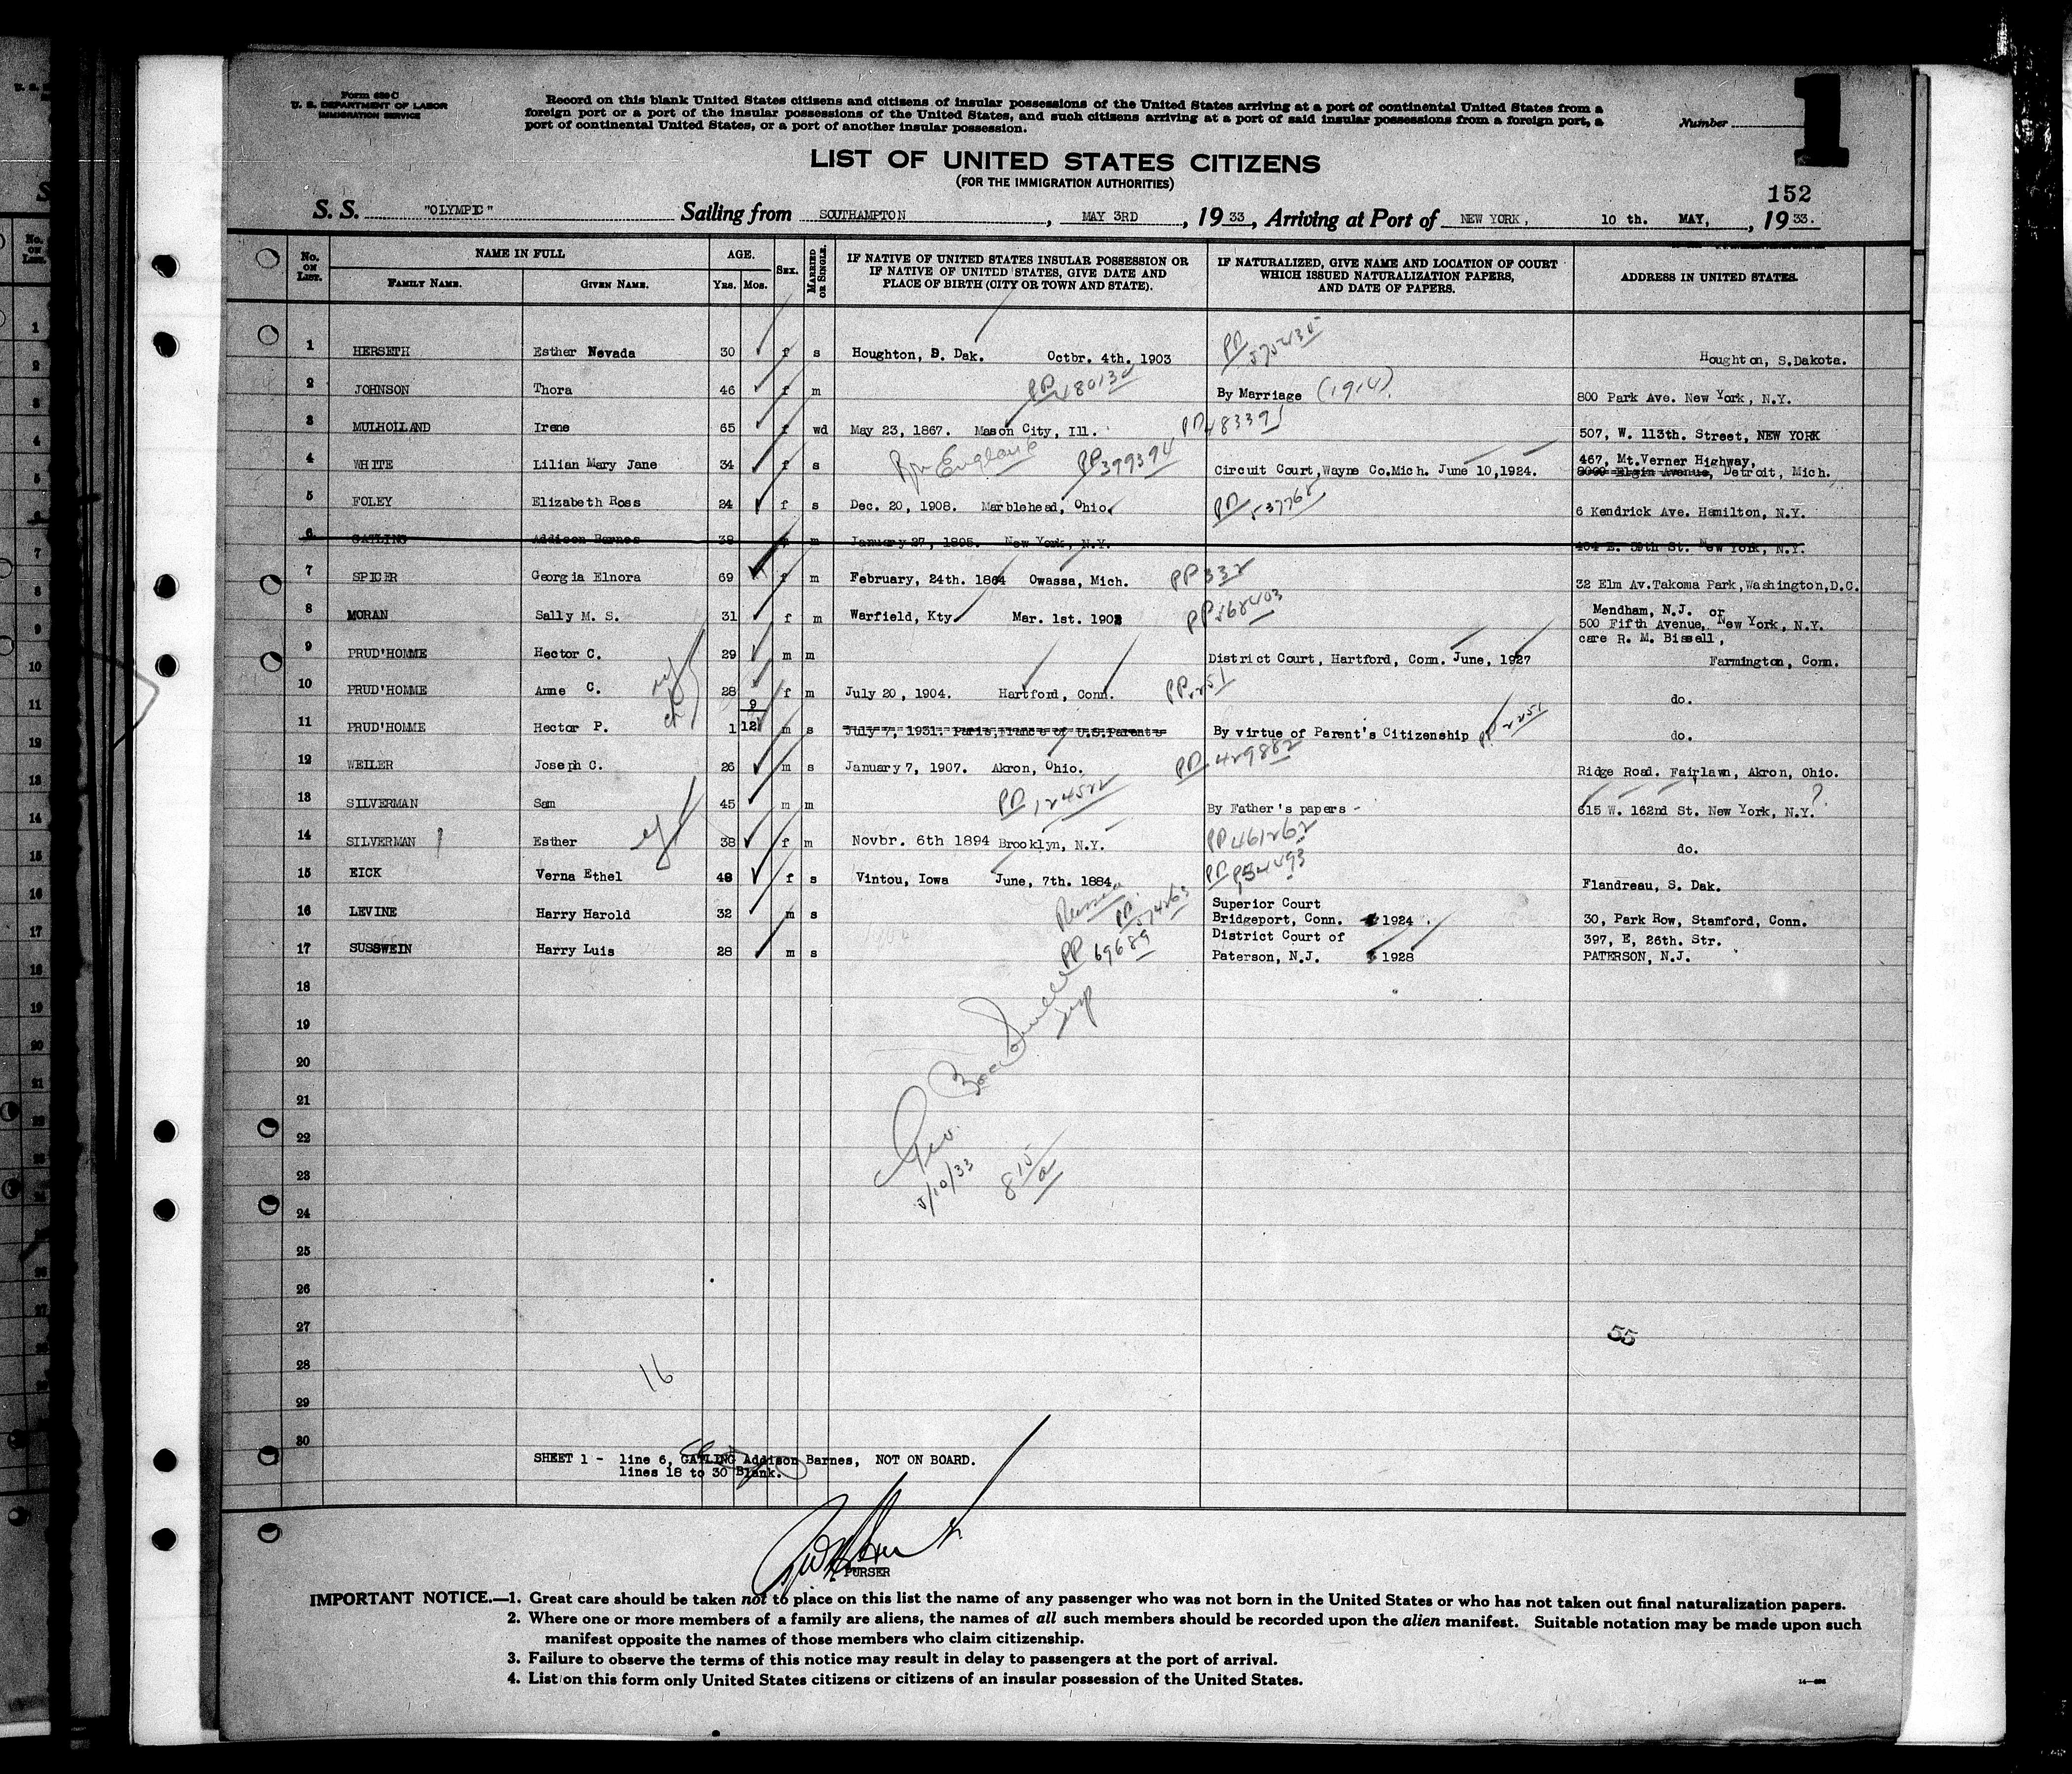 Form 630 C
U. S. DEPARTMENT OF LABOR
IMMIGRATION SERVICE
Record on this blank United States citizens and citizens of insular possessions of the United States arriving at a port of continental United States from a
foreign port or a port of the insular possessions of the United States, and such citizens arriving at a port of said insular possessions from a foreign port, a
port of continental United States, or a port of another insular possession.
Number
1
LIST OF UNITED STATES CITIZENS
(FOR THE IMMIGRATION AUTHORITIES)
152
S. S. "OLYMPIC" Sailing from SOUTHAMPTON, MAY 3RD, 1933, Arriving at Port of NEW YORK, 10 th. MAY, 1933.
No. ON LIST. NAME IN FULL FAMILY NAME. GIVEN NAME. AGE. YRS. MOS. SEX. MARRIED OR SINGLE. IF NATIVE OF UNITED STATES INSULAR POSSESSION OR IF NATIVE OF UNITED STATES, GIVE DATE AND PLACE OF BIRTH (CITY OR TOWN AND STATE). IF NATURALIZED, GIVE NAME AND LOCATION OF COURT WHICH ISSUED NATURALIZATION PAPERS, AND DATE OF PAPERS. ADDRESS IN UNITED STATES.
1 HERSETH Esther Nevada 30 f s Houghton, S. Dak. Octbr. 4th. 1903 PP Houghton, S.Dakota.
2 JOHNSON Thora 46 f m PP By Marriage (1914) 800 Park Ave. New York, N.Y.
3 MULHOLLAND Irene 65 f wd May 23, 1867. Mason City, Ill. PP 48339 507, W. 113th. Street, NEW YORK
4 WHITE Lilian Mary Jane 34 f s England PP 399394 Circuit Court, Wayne Co.Mich. June 10, 1924. 467, Mt.Verner Highway,
8000 Elgin Avenue, Detroit, Mich.
5 FOLEY Elizabeth Ross 24 f s Dec. 20, 1908. Marblehead, Ohio. PP 6 Kendrick Ave. Hamilton, N.Y.
6 GATLING Addison Barnes 38 m m January 27, 1895. New York, N.Y. 404 E. 59th St. New York, N.Y.
7 SPICER Georgia Elnora 69 f m February, 24th. 1864 Owassa, Mich. PP 332 32 Elm Av.Takoma Park,Washington,D.C.
8 MORAN Sally M. S. 31 f m Warfield, Kty. Mar. 1st. 1902 PP 568403 Mendham, N.J. or
500 Fifth Avenue, New York, N.Y.
care R. M. Bissell,
9 PRUD'HOMME Hector C. 29 m m District Court, Hartford, Conn. June, 1927 Farmington, Conn.
10 PRUD'HOMME Anne C. 28 f m July 20, 1904. Hartford, Conn. PP 2251 do.
11 PRUD'HOMME Hector P. 1 9/12 m s July 7, 1931. Paris, France of U.S.Parents By virtue of Parent's Citizenship PP 2251 do.
12 WEILER Joseph C. 26 m s January 7, 1907. Akron, Ohio. PP 429882 Ridge Road. Fairlawn, Akron, Ohio.
13 SILVERMAN Sam 45 m m PP 124522 By Father's papers - 615 W. 162nd St. New York, N.Y. ?
14 SILVERMAN Esther 38 f m Novbr. 6th 1894 Brooklyn, N.Y. PP 461262 do.
15 EICK Verna Ethel 48 f s Vintou, Iowa June, 7th. 1884 PP Flandreau, S. Dak.
16 LEVINE Harry Harold 32 m s Russia PP 574263 Superior Court
Bridgeport, Conn. 1924 30, Park Row, Stamford, Conn.
17 SUSSWEIN Harry Luis 28 m s PP 69689 District Court of
Paterson, N.J. 1928 397, E, 26th. Str.
PATERSON, N.J.
18
19
20
21
22
23
24
25
26
27
28
29
30
Geo.
5/10/33
815/a
55
16
SHEET 1 - line 6, GATLING Addison Barnes, NOT ON BOARD.
lines 18 to 30 Blank.
PURSER
IMPORTANT NOTICE.—1. Great care should be taken not to place on this list the name of any passenger who was not born in the United States or who has not taken out final naturalization papers.
2. Where one or more members of a family are aliens, the names of all such members should be recorded upon the alien manifest. Suitable notation may be made upon such
manifest opposite the names of those members who claim citizenship.
3. Failure to observe the terms of this notice may result in delay to passengers at the port of arrival.
4. List on this form only United States citizens or citizens of an insular possession of the United States.